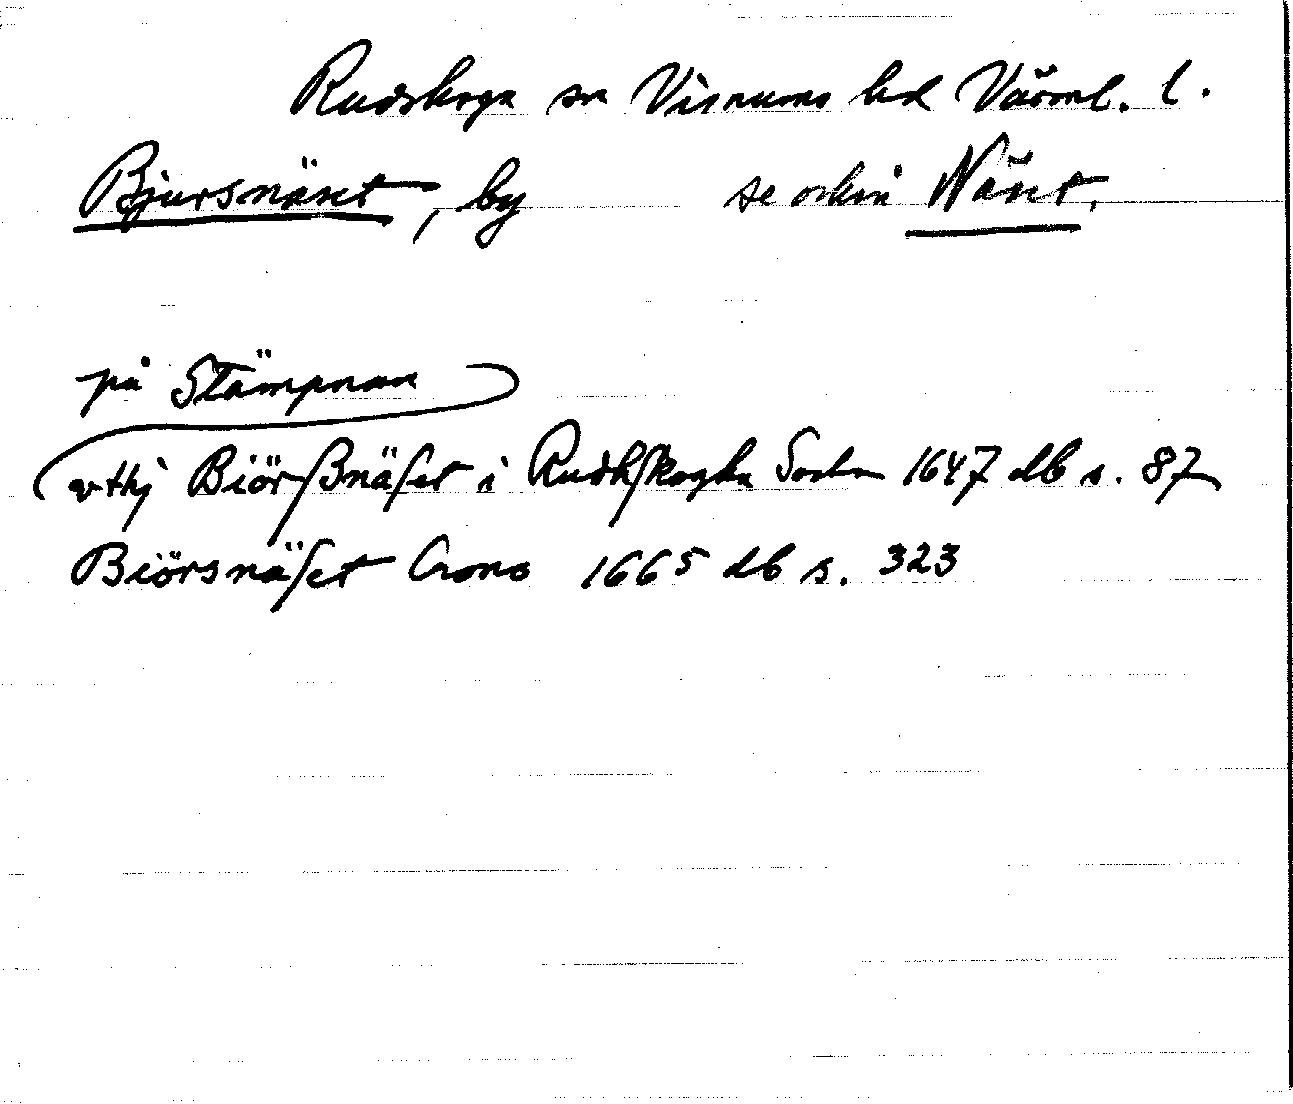 Rudskoga sn Visnums hd Värml. l.
Bjursnäset, by se också Näset.
på Stämpnan
vthj Biörßnäſet i Rudhſkogha Sochn 1647 db s. 87
Biörsnäſet Crono 1665 db s. 323